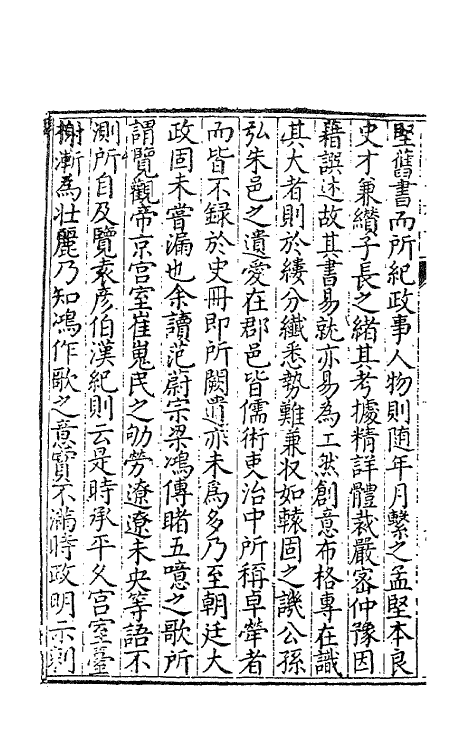 堅舊書而所紀政事人物則随年月繫之孟堅本良
史才兼纘子長之緒其考據精詳體裁嚴密仲豫因
藉譔述故其書易就亦易為工然創意布格專在識
其大者則於縷分纖悉勢難兼收如轅固之譏公孫
弘朱邑之遺愛在郡邑皆儒術吏治中所稱卓犖者
而皆不録於史冊即所闕遺亦未為多乃至朝廷大
政固未嘗漏也余讀范蔚宗梁鴻傳睹五噫之歌所
謂覽觀帝京宫室崔嵬民之劬勞遼遼未央等語不
測所自及覽袁彦伯漢紀則云是時承平久宫室臺
榭漸為壮麗乃知鴻作歌之意實不滿時政明示刺